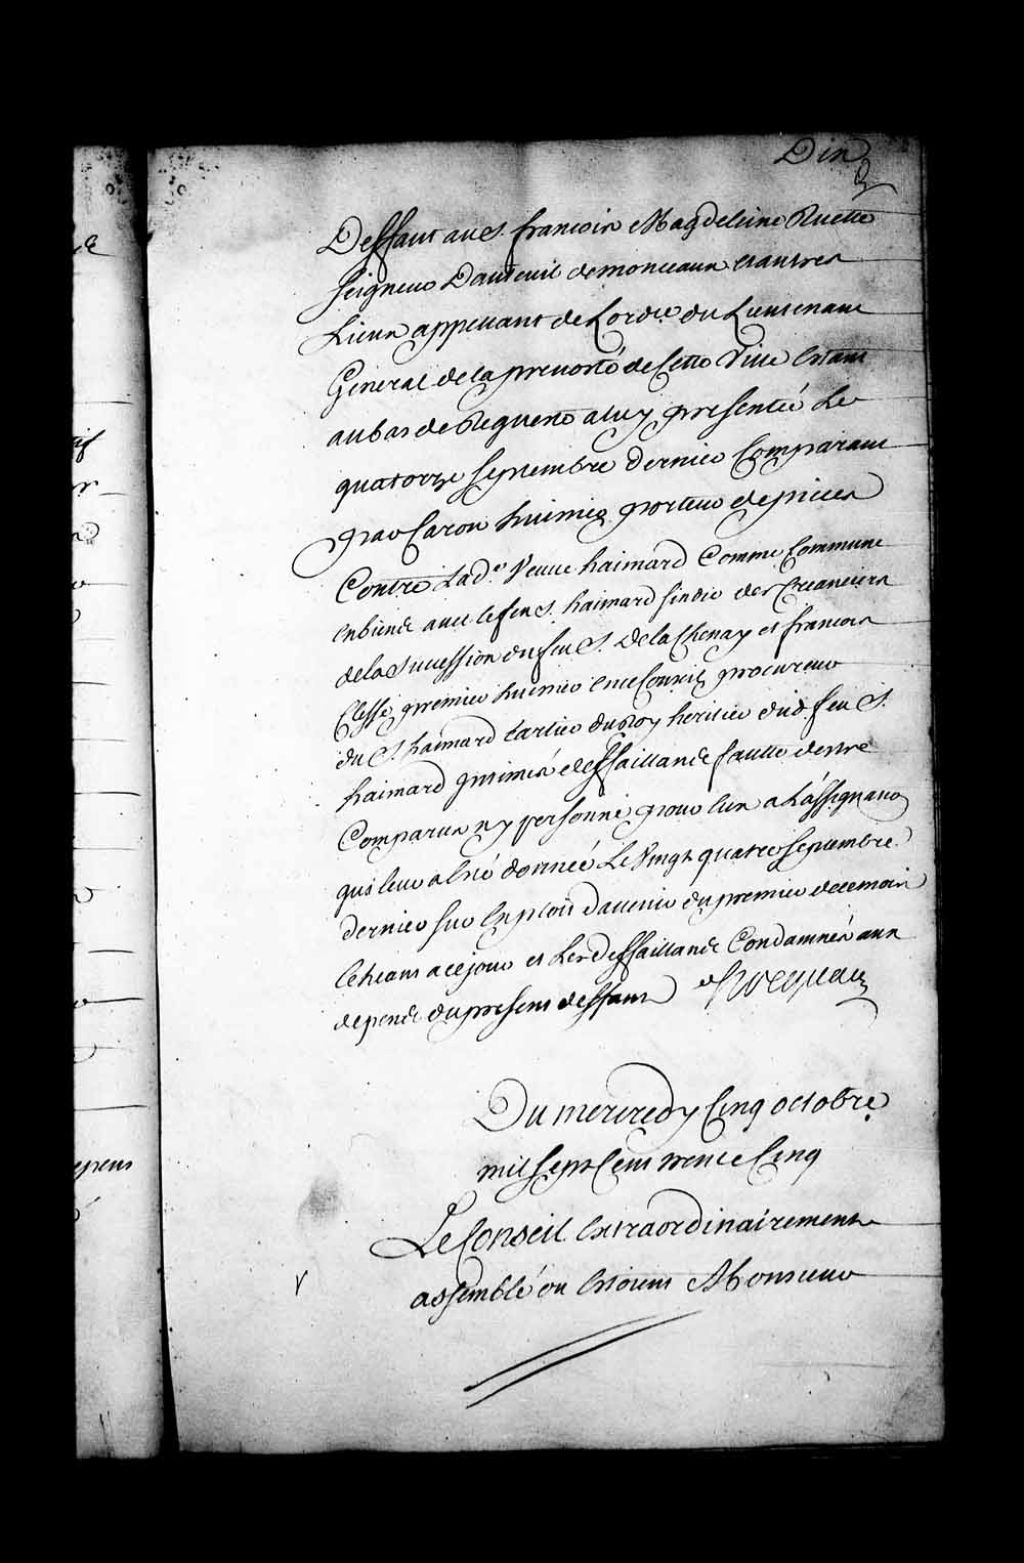 Du
Deffaut au S. françois Magdeleine Ruette
seigneur Dauteuil de monceaux et autres
Lieux appellant de Lord.ce du Lieutenant
General de la prevosté de Cette Ville Estant
au bas de Requeste a luy presentée Le
quatorze septembre dernier Comparant
par Caron huissier porteur de pieces
Contre Lad.e Veuve haimard Comme Commune
en biens avec le feu S. haimard sindic des Creanciers
de la Succession du feu S. de la Chenay et françois
Clesse premier huissier en ce Conseil procureur
du S. haimard Cartier du Roy heritier dud. feu S.
haimard intimés deffaillands faute destre
Comparus ny personne pour Eux a Lassignaon
qui leur a Esté donnée Le Vingt quatre septembre
dernier sur Exploit davenir du premier de ce mois
Echeant a ce jour et Les deffaillands Condamnés aux
depends du present deffaut

Du mercredy Cinq octobre
mil sept Cent trente Cinq
Le Conseil Extraordinairement
assemblé ou Estoient Monsieur